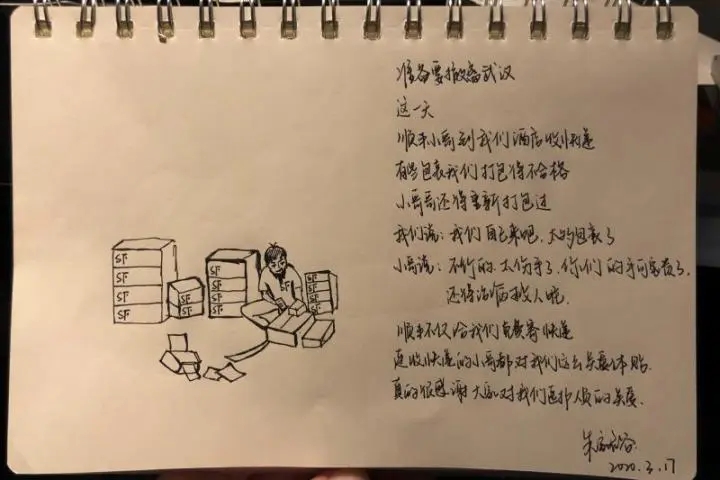 SF
SF
SF
SF
SF
SF
SF
SF
SF
SF
SF
SF
SF
SF
准备要撤离武汉
这一天
顺丰小哥到我们酒店收快递
有些包裹我们打包得不合格
小哥哥还得重新打包过
我们说:我们自己来吧,太多包裹了
小哥说:不行的,太伤手了,你们的手可宝贵了,
还得治病救人呢.
顺丰不仅给我们免费寄快递
连收快递的小哥都对我们这么关爱体贴.
真的很感谢大家对我们医护人员的关爱.
朱
2020.3.17